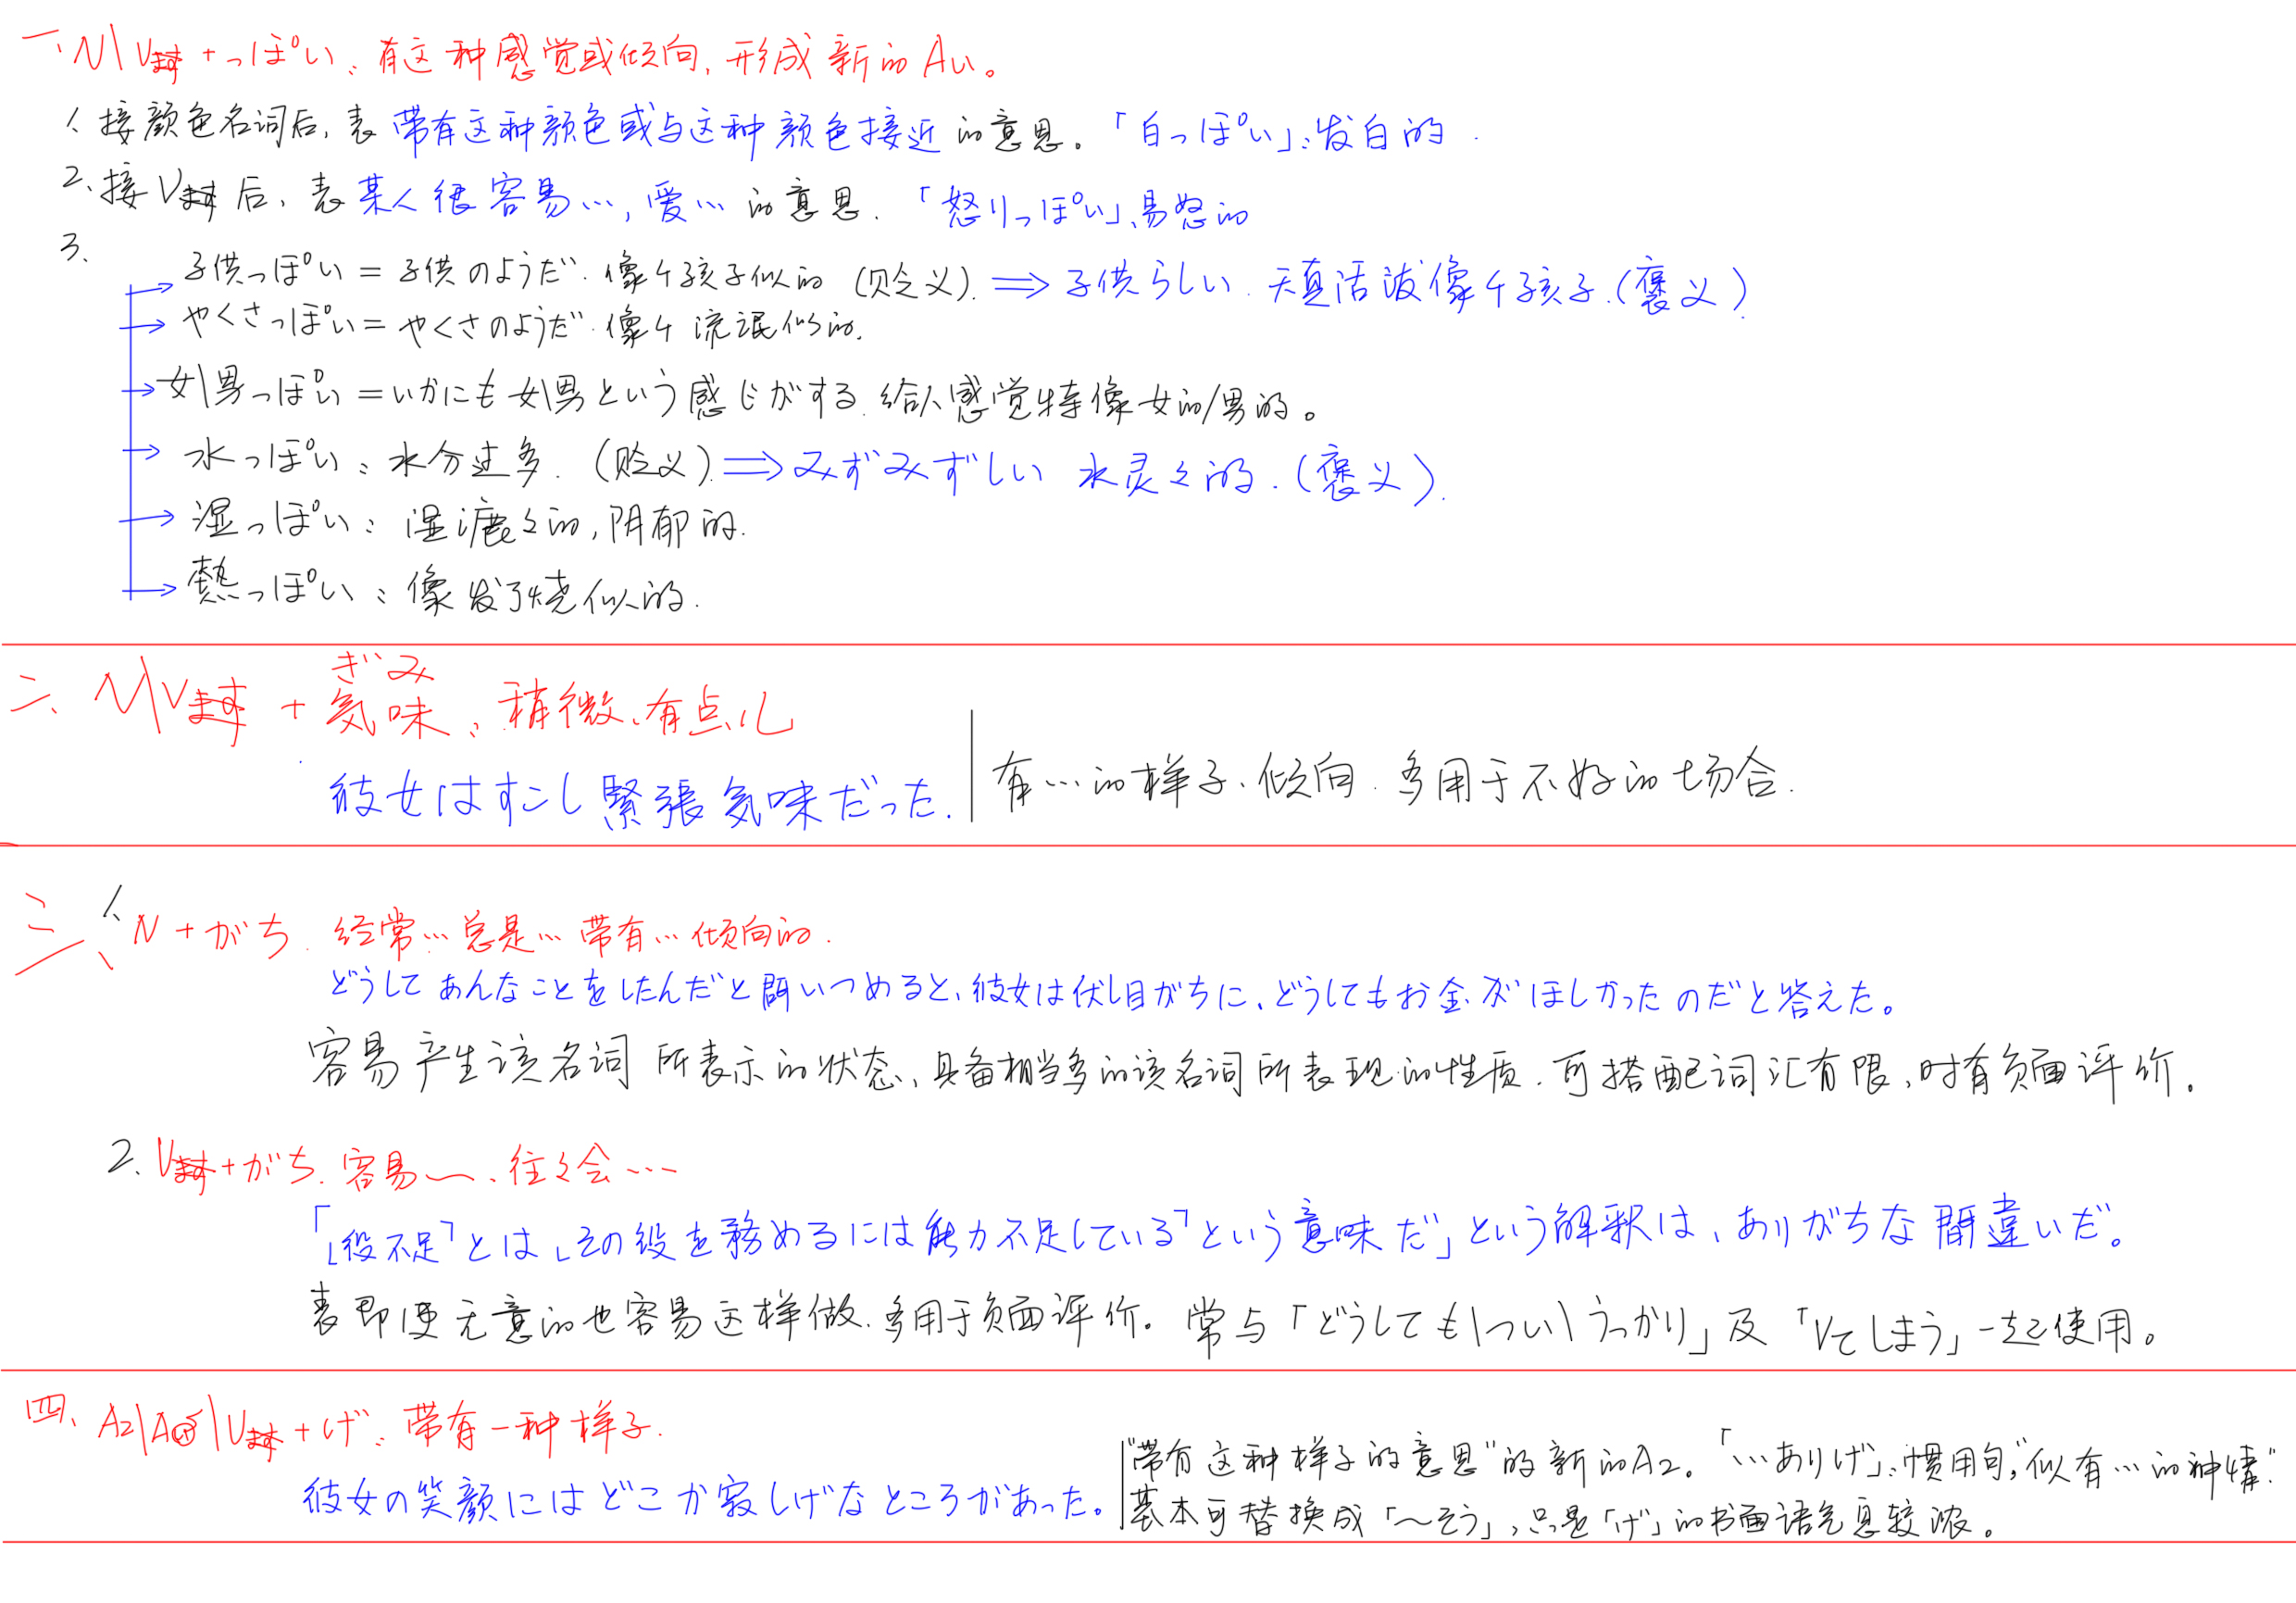 一、N|Vます+っぽい：有这种感觉或倾向，形成新的Aい。
1、接颜色名词后，表带有这种颜色或与这种颜色接近的意思。「白っぽい」：发白的．
2、接Vます后，表某人很容易…，爱…的意思．「怒りっぽい」、易怒的
3、
子供っぽい＝子供のようだ．像个孩子似的（贬义）．⇒子供らしい．天真活泼像个孩子．（褒义）．
やくさっぽい＝やくさのようだ．像个流氓似的．
女|男っぽい＝いかにも女|男という感じがする．给人感觉特像女的/男的。
水っぽい：水分过多．（贬义）．⇒みずみずしい 水灵々的．（褒义）．
湿っぽい：湿漉々的，阴郁的．
熱っぽい：像发了烧似的．
ぎみ
二、N|Vます+気味：稍微、有点儿
彼女はすこし緊張気味だった．|有…的样子、倾向．多用于不好的场合．
三、1、N+がち．经常…总是…带有…倾向的．
どうしてあんなことをしたんだと問いつめると、彼女は伏し目がちに、どうしてもお金がほしかったのだと答えた。
容易产生该名词所表示的状态、具备相当多的该名词所表现的性质．可搭配词汇有限，时有负面评价。
2.Vます+がち．容易～、往々会…
「「役不足」とは「その役を務めるには能力不足している」という意味だ」という解釈は、ありがちな間違いだ。
表即使无意的也容易这样做．多用于负面评价。常与「どうしても|つい|うっかり」及「Vてしまう」一起使用。
四、A2|Aい|Vます+げ：带有一种样子．
彼女の笑顔にはどこか寂しげなところがあった。|"带有这种样子的意思"的新的A2。「…ありげ」：惯用句，"似有…的神情"．
基本可替换成「～そう」，只是「げ」的书面语气息较浓。